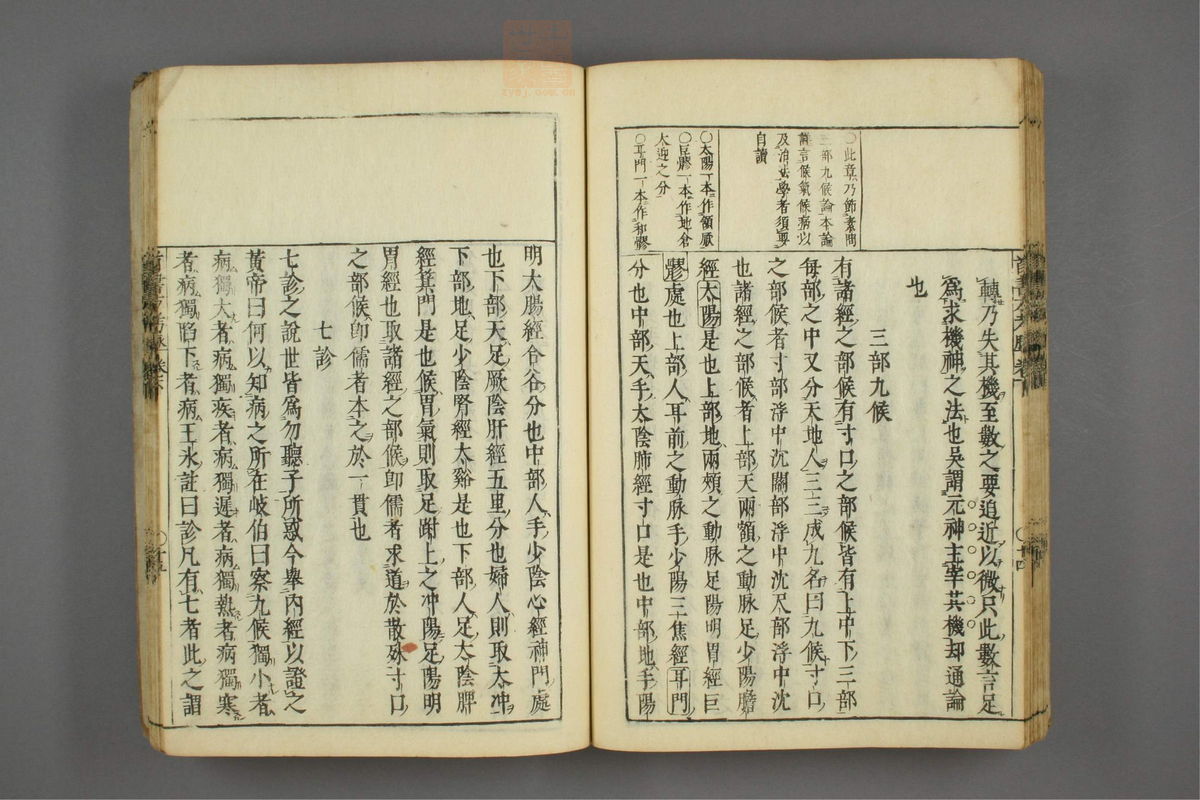 轉乃失其機至數之要迫近以微只此數言足
爲求機神之法也吳謂元神主宰其機却通論
也
三部九候
有諸經之部候有寸口之部候皆有上中下三部
每部之中又分天地人三三成九名曰九候寸口
之部候者寸部浮中沉關部浮中沈尺部浮中沈
也諸經之部候者上部天兩額之動脉足少陽膽
經太陽是也上部地兩頰之動脉足陽明胃經巨
髎處也上部人耳前之動脉手少陽三焦經耳門
分也中部天手太陰肺經寸口是也中部地手陽
〇此章乃節素問
三部九候論本論
謹言候氣候病以
及治法學者須要
自讀
〇太陽一本作頷厭
〇巨髎一本作地倉
大迎之分
〇耳門一本作和髎
明大腸經合谷分也中部人手少陰心經神門處
也下部天足厥陰肝經五里分也婦人則取太冲
下部地足少陰腎經太谿是也下部人足太陰脾
經箕門是也候胃氣則取足跗上之冲陽足陽明
胃經也取諸經之部候卽儒者求道於散殊寸口
之部候卽儒者本之於一貫也
七診
七診之說世皆爲勿聽子所惑今舉內經以證之
黃帝曰何以知病之所在岐伯曰察九候獨小者
病獨大者病獨疾者病獨遲者病獨熱者病獨寒
者病獨陷下者病王氷註曰診凡有七者此之謂
〇十四
〇十五